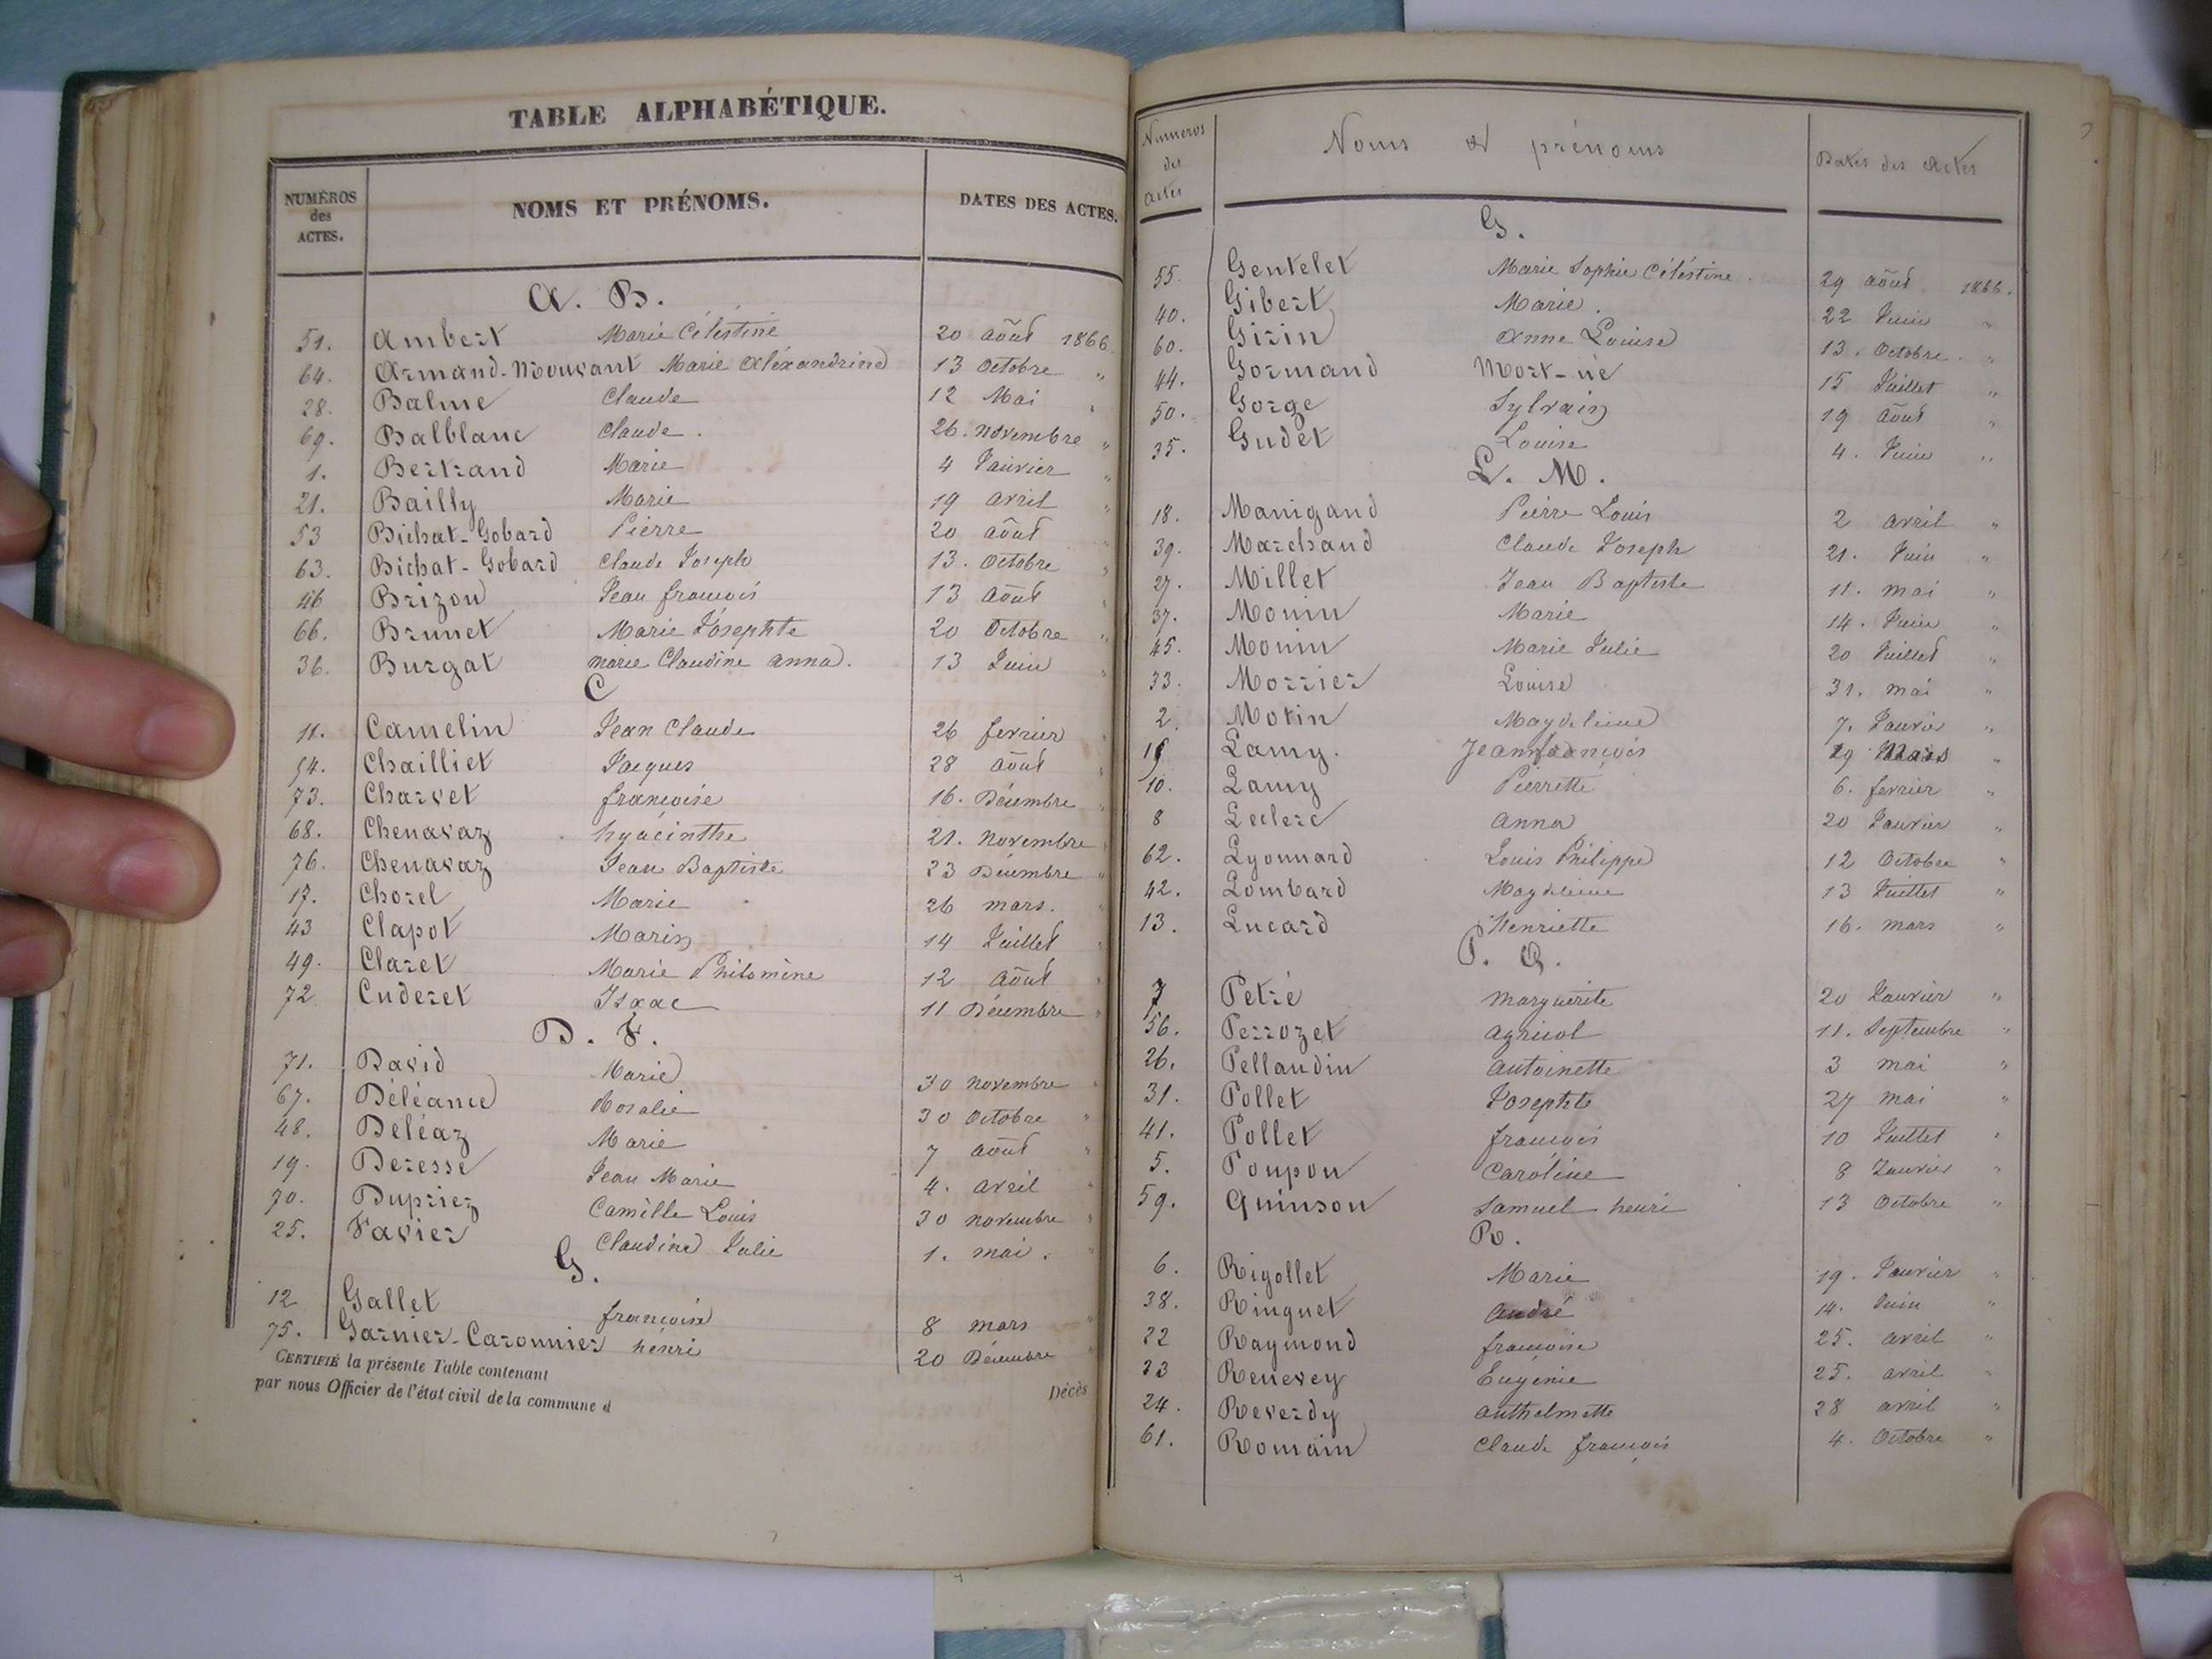 TABLE ALPHABÉTIQUE.
NUMÉROS des ACTES. NOMS ET PRÉNOMS. DATES DES ACTES.
A. B.
51. Ambert Marie Céléstine 20 août 1866
64. Armand-Mouvant Marie Aléxandrine 13 Octobre "
28. Balme Claude 12 Mai "
69. Balblanc Claude. 26. Novembre "
1. Bertrand Marie 4 Janvier "
21. Bailly Marie 19 avril "
53 Bichat-Gobard Pierre 20 août "
63. Bichat-Gobard Claude Joseph 13. Octobre "
46 Brizon Jean françois 13 Août "
66. Brunet Marie Joséphte 20 Octobre "
36. Burgat marie Claudine anna. 13 Juin "
C
11. Camelin Jean Claude 26 fevrier "
54. Chailliet Jacques 28 août "
73. Charvet françoise 16. Décembre "
68. Chenavaz hyacinthe 21. Novembre "
76. Chenavaz Jean Baptiste 23 Décembre "
17. Chorel Marie 26 mars. "
43 Clapot Marin 14 Juillet "
49. Claret Marie Philomène 12 Août "
72 Cuderet Isaac 11 Décembre "
D. F.
71. David Marie 30 novembre "
67. Déléance Rosalie 30 Octobre "
48. Deléaz Marie 7 août "
19. Deresse Jean Marie 4. avril "
70. Dupriez Camille Louis 30 novembre "
25. Favier Claudine Julie 1. mai. "
G.
12 Gallet françoise 8 mars "
75. Garnier-Caronnier hénri 20 Décembre "
CERTIFIÉ la présente Table contenant Décès
par nous Officier de l'état civil de la commune d
Numeros des actes Noms & prénoms Dates des actes
G.
55. Gentelet Marie Sophie Céléstine. 29 août 1866.
40. Gibert Marie. 22 Juin "
60. Girin Anne Louise 13. Octobre. "
44. Gormand Mort-né 15 Juillet "
50. Gorge Sylvain 19 août "
35. Gudet Louise 4. Juin "
L. M.
18. Manigand Pierre Louis 2 avril "
39. Marchand Claude Joseph 21. Juin "
27. Millet Jean Baptiste 11. mai "
37. Monin Marie 14. Juin "
45. Monin Marie Julie 20 Juillet "
33. Morrier Louise 31. mai "
2. Motin Magdeleine 7. Janvier "
Lamy. Jean françois 29 Mars "
10. Lamy Pierrette 6. fevrier "
8 Leclerc anna 20 Janvier "
62. Lyonnard Louis Philippe 12 Octobre "
42. Lombard Magdeleine 13 Juillet "
13. Lucard Henriette 16. mars "
P. Q.
7 Petré marguerite 20 Janvier "
56. Perrozet agricol 11. Septembre "
26. Pellaudin antoinette 3 mai "
31. Pollet Josephte 27 mai "
41. Pollet françois 10 Juillet "
5. Poupon Caroline 8 Janvier "
59. Quinson Samuel henri 13 Octobre "
R.
6. Rigollet Marie 19. Janvier "
38. Ringuet André 14. Juin "
22 Raymond françoise 25. avril "
23 Renevey Eugénie 25. avril "
24. Reverdy anthelmette 28 avril "
61. Romain Claude françois 4. Octobre "